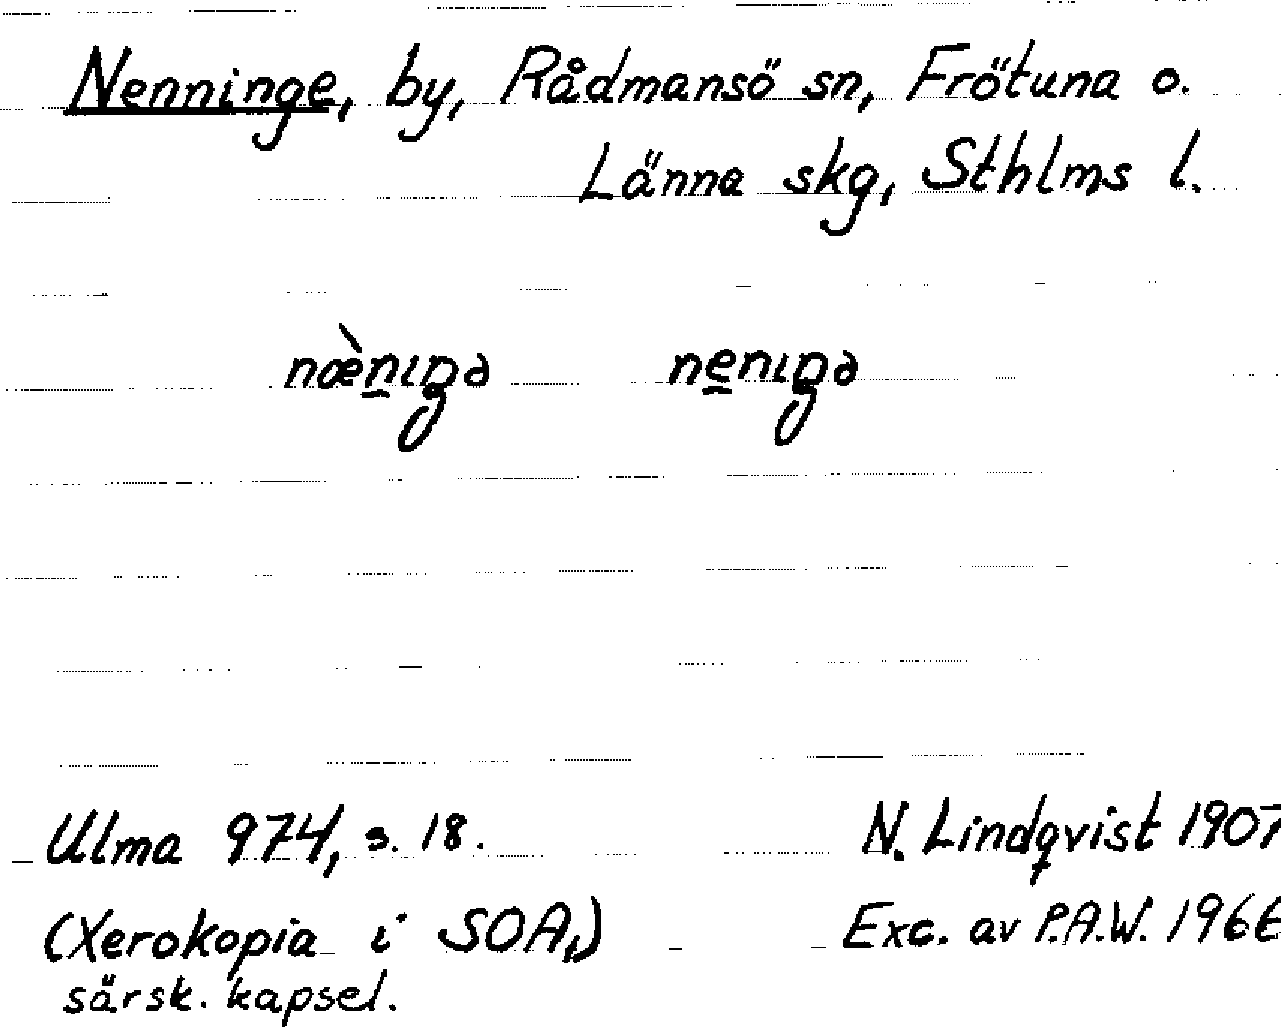 Nenninge, by, Rådmansö sn, Frötuna o.
Länna skg, Sthlms l.
næ̀n̲ıŋə ne̲nıŋə
Ulma 974, s. 18. N. Lindqvist 1907
(Xerokopia i SOA,) Exc. av P.A.W. 1966
särsk. kapsel.